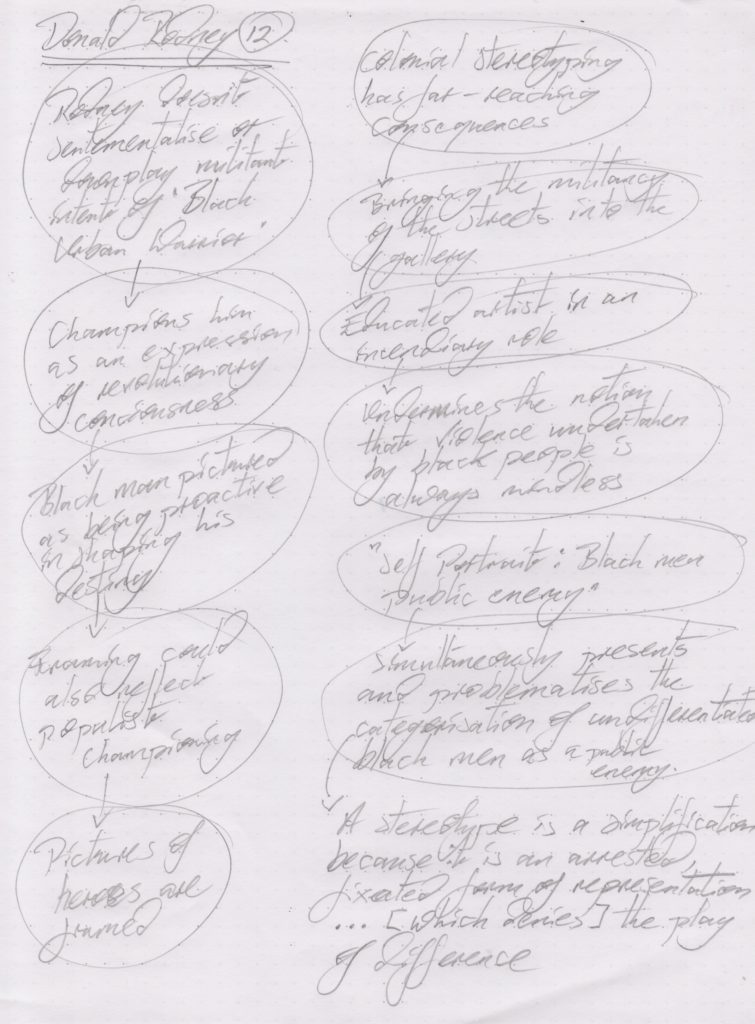 Donald Rodney 12
Rodney doesn't
sentementalise or
downplay militant
intent of "Black
Urban Warrior"
Champions him
as an expression
of revolutionary
conciousness
Black man pictured
as being proactive
in shaping his
destiny
Framing could
also reflect
populist
championing
Pictures of
heroes are
framed
Colonial stereotyping
has far-reaching
consequences
Bringing the militancy
of the streets into the
gallery
Educated artist in an
incendiary role
Undermines the notion
that violence undertaken
by black people is
always mindless
"Self Portrait: Black men
public enemy"
Simultaneously presents
and problematises the
categorisation of undifferentiated
black men as a public
enemy.
A stereotype is a simplification
because it is an arrested,
fixated form of representation
... [which denies] the play
of difference